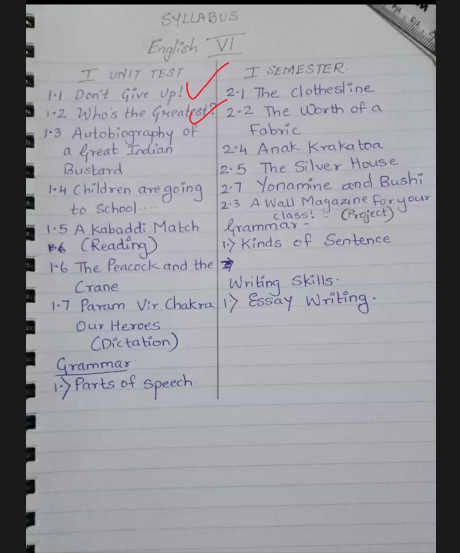 SYLLABUS
English VI
I UNIT TEST
1.1 Don't Give Up!
1.2 Who's the Greatest?
1.3 Autobiography of
a Great Indian
Bustard
1.4 Children are going
to School....
1.5 A Kabaddi Match
(Reading)
1.6 The Peacock and the
Crane
1.7 Param Vir Chakra
Our Heroes
(Dictation)
Grammar
1.> Parts of speech.
I SEMESTER.
2.1 The clothesline
2.2 The Worth of a
Fabric
2.4 Anak Krakatoa
2.5 The Silver House
2.7 Yonamine and Bushi
2.3 A Wall Magazine for your
class! - (Project)
Grammar -
1.> Kinds of Sentence
Writing Skills.
1.> Essay Writing.